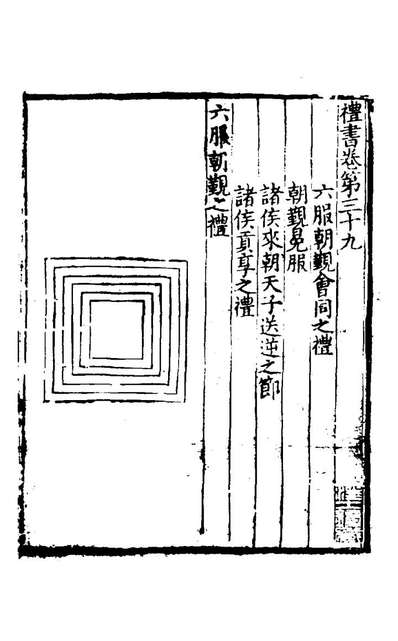 禮書卷第三十九
六服朝覲會同之禮
朝覲冕服
諸侯來朝天子送逆之節
諸侯貢享之禮
六服朝覲之禮